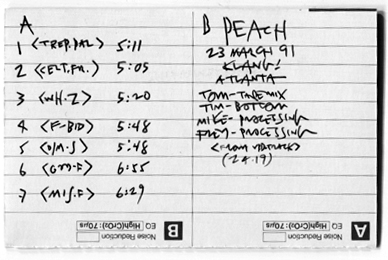 A
1 <TREP.PAL> 5:11
2 <CELT.FR.> 5:05
3 <WH.Z> 5:20
4 <F-BID> 5:48
5 <O/M.S> 5:48
6 <GM-F> 6:55
7 <MIS.F> 6:29
B PEACH
23 MARCH 91
KLANG!
ATLANTA
TOM-TAPE MIX
TIM-BOTTOM
MIKE-PROCESSING
-PROCESSING
<FROM >
(24.19)
B Noise Reduction
EQ High(CrO2):70µs
A Noise Reduction
EQ High(CrO2):70µs